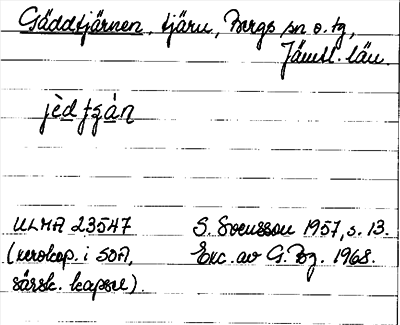 Gäddtjärnen, tjärn, Bergs sn o. tg,
Jämtl. län.
jèd tʃạ̀n
ULMA 23547 S. Svensson 1957, s. 13.
(xerokop. i SOA, Exc. av G. Bg. 1968.
särsk. kapsel).